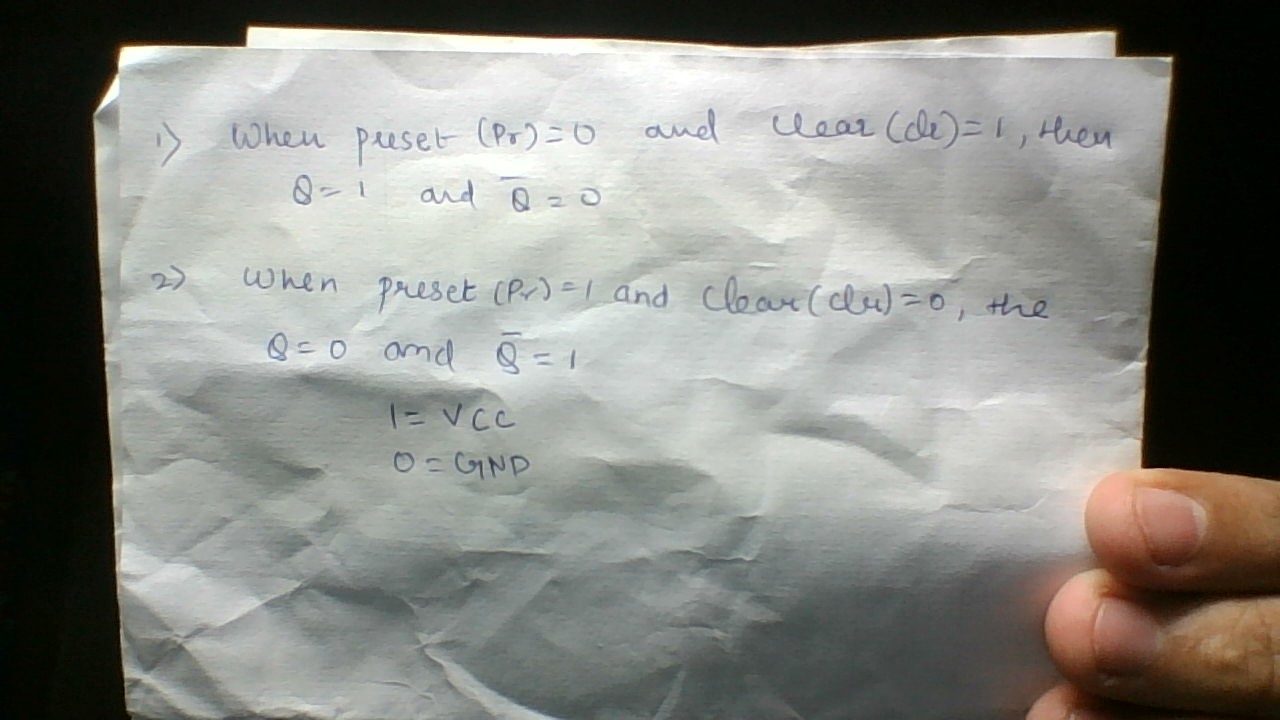 1) When preset (Pr)=0 and clear (clr)=1, then
Q=1 and Q̅=0
2) When preset (Pr)=1 and Clear (clr)=0, the
Q=0 and Q̅=1
1=VCC
0=GND